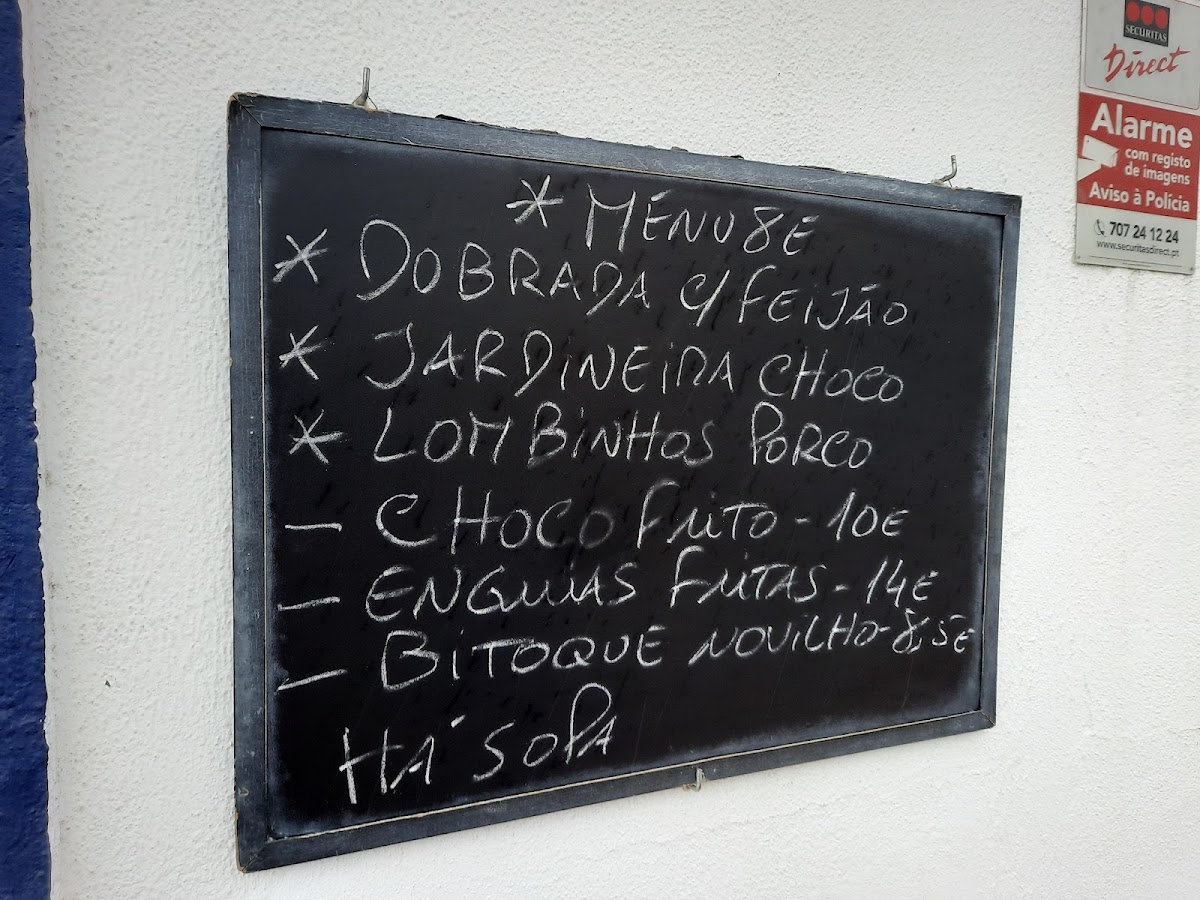 * MENU 8E
* DOBRADA C/ FEIJÃO
* JARDINEIRA CHOCO
* LOMBINHOS PORCO
- CHOCO FRITO - 10E
- ENGUIAS FRITAS - 14E
- BITOQUE NOVILHO - 8,5E
HÁ SOPA
SECURITAS
Direct
Alarme
com registo
de imagens
Aviso à Polícia
707 24 12 24
www.securitasdirect.pt